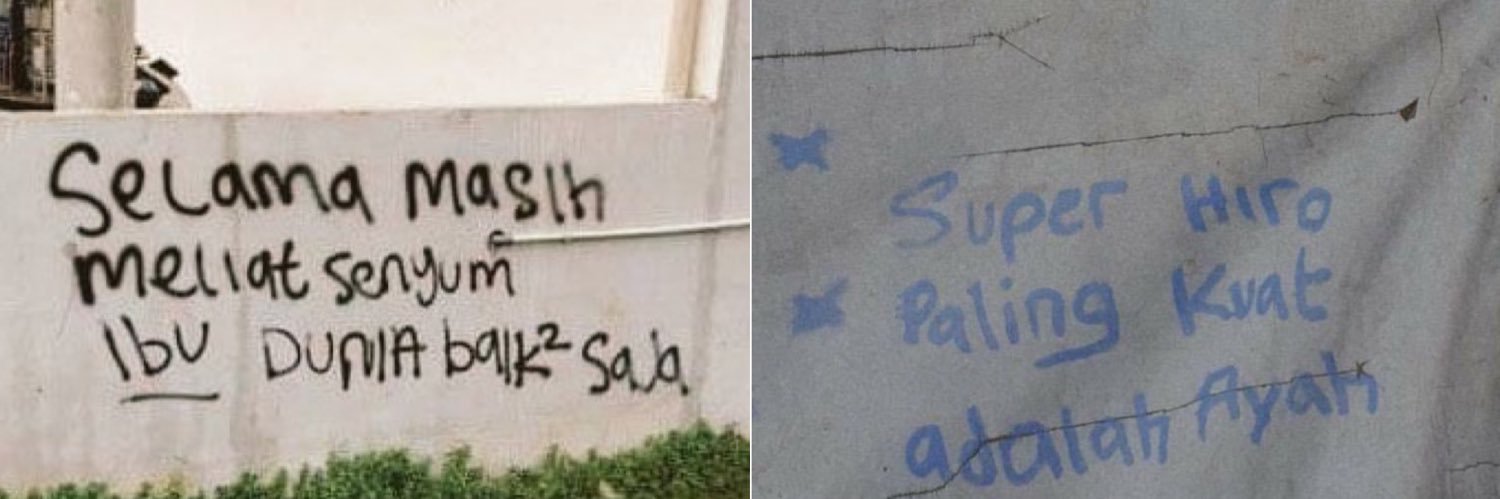 Selama masih
meliat senyum
Ibu DUNIA baik² saja
Super Hiro
Paling Kuat
adalah Ayah